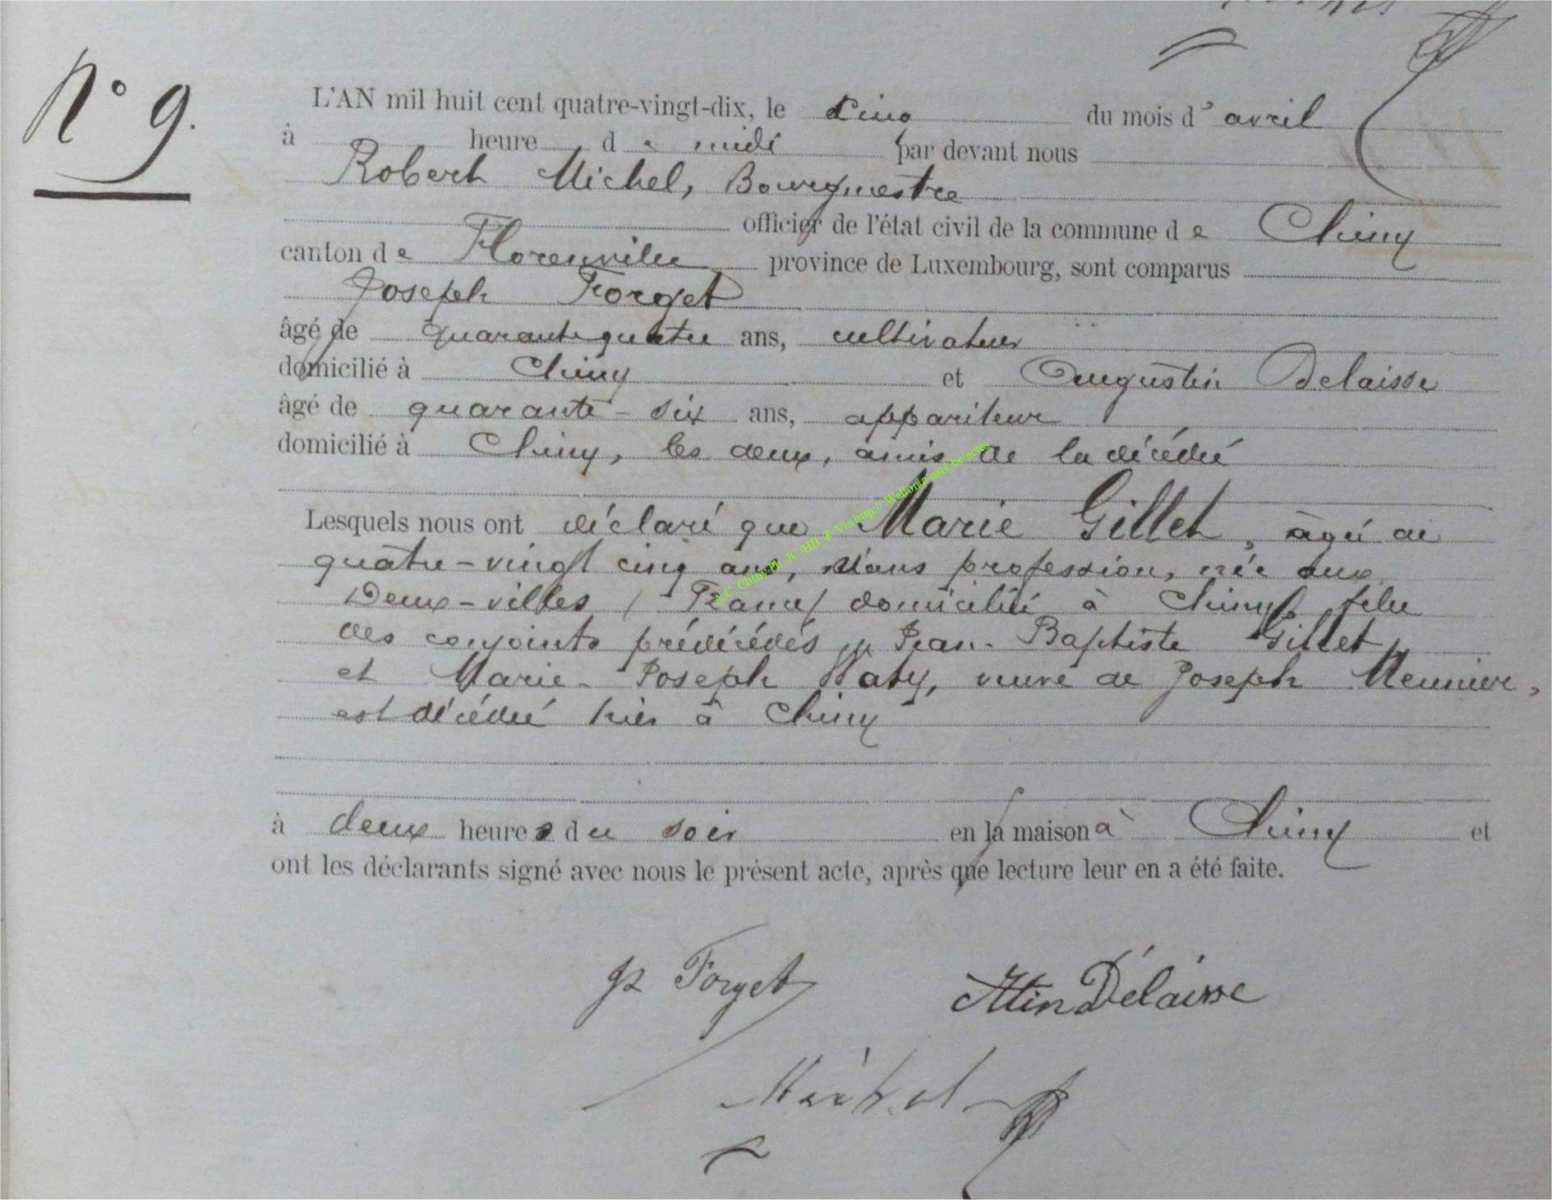 N° 9.
L'AN mil huit cent quatre-vingt-dix, le cinq du mois d' avril
à heure d e midi par devant nous
Robert Michel, Bourgmestre
officier de l'état civil de la commune d e Chiny
canton d e Florenville province de Luxembourg, sont comparus
Joseph Forget
âgé de quarante quatre ans, cultivateur
domicilié à Chiny et Augustin Delaisse
âgé de quarante-six ans, appariteur
domicilié à Chiny, les deux, amis de la décédée
Lesquels nous ont déclaré que Marie Gillet, âgée de
quatre-vingt cinq ans, sans profession, née aux
Deux-villes (France) domiciliée à Chiny, fille
des conjoints prédécédés Jean-Baptiste Gillet
et Marie-Joseph Naty, veuve de Joseph Meunier,
est décédée hier à Chiny
à deux heures du soir en la maison à Chiny et
ont les déclarants signé avec nous le présent acte, après que lecture leur en a été faite.
Forget Atin Délaisse
Michel